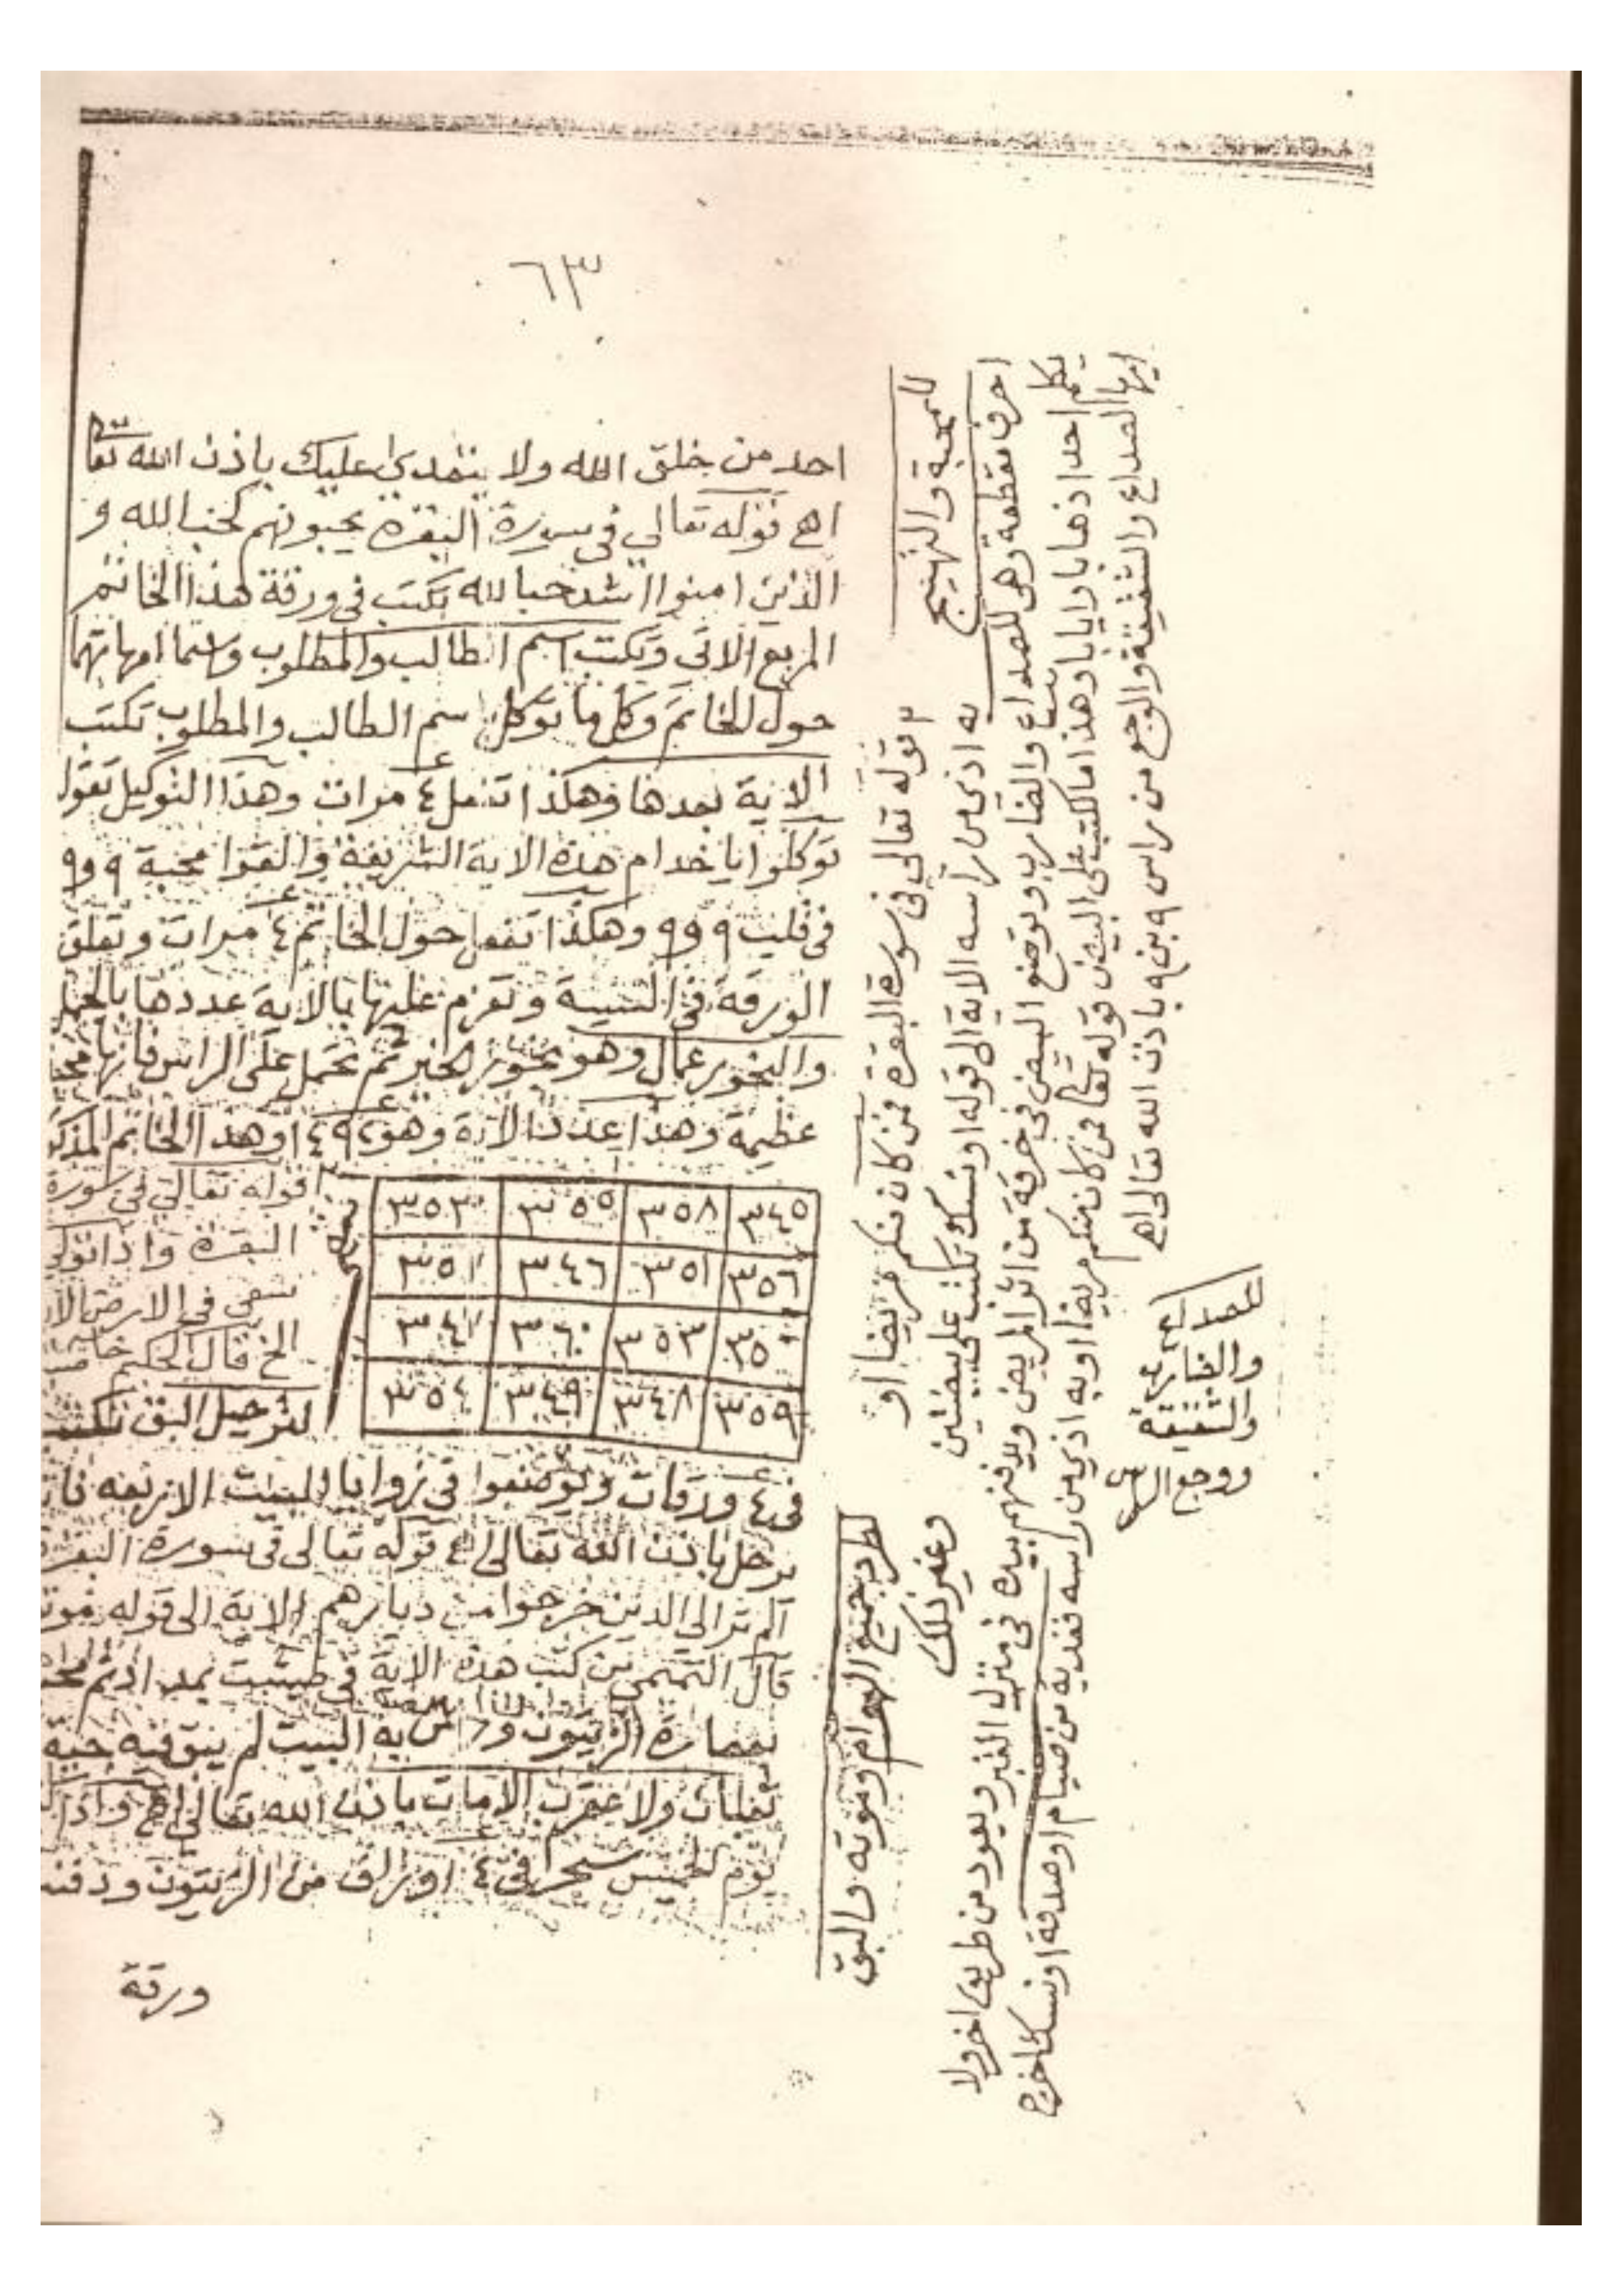 ٦٣
احد من خلق الله ولا يتعدى عليك باذن الله تعا
اهـ قوله تعالى في سورة البقرة يحبونهم كحب الله و
الذين امنوا اشد حبا لله تكتب في ورقة هذا الخاتم
المربع الاتي وتكتب اسم الطالب والمطلوب واسما امهاتهما
حول الخاتم وكل ما توكل اسم الطالب والمطلوب تكتب
الاية بعدها وهكذا تفعل ٤ مرات وهذا التوكيل تقول
توكلوا يا خدام هذه الاية الشريفة والقوا محبة ٩ و٩
في قلب ٩ و٩ وهكذا تفعل حول الخاتم ٤ مرات وتعلق
الورقة في وتعزم عليها بالاية عددها بالجمل
والبخور عمال وهو ثم تحمل على الراس فانها
عظيمة وهذا عدد الاية وهو ١٤٩٤ وهذا الخاتم المذكور
قوله تعالى في سورة
البقرة واذا تولى
سعى في الارض
الخ قال الحكيم
لترحيل البق تكتب
٣٤٥ ٣٥٨ ٣٥٥
٣٥١ ٣٤٦
٣٥٣
٣٥٩ ٣٤٨ ٣٤٩ ٣٥٤
في ٤ ورقات ويوضعوا في زوايا البيت الاربعه
يرحل باذن الله تعالى اهـ قوله تعالى في سورة البقرة
الم تر الى الذين خرجوا من ديارهم الاية الى قوله موتوا
قال من كتب هذه الاية في طشت
بعصارة الزيتون ورش به البيت لم يبق فيه حية
ولا عقرب الا مات باذن الله تعالى اهـ واذا
يوم الخميس سحر في ٤ اوراق من الزيتون ودفنت
ورقة
للمحبة والتهييج
لطرد جميع الهوام وموته والبق
وغير ذلك
٢ قوله تعالى في سورة البقرة فمن كان منكم مريضا او
به اذى من راسه الاية الى قوله او نسك تكتب على بيضتين
احرف مقطعة وهي للصداع والضارب وتوضع البيض في خرقة من اثر المريض ويدفنهم بيده في منزل القبر ويعود من طريق اخر ولا
يكلم احدا ذهابا وايابا وهذا ما تكتب على البيض قوله تعا فمن كان منكم مريضا او به اذى من راسه ففدية من صيام او صدقة او نسك اخرج
ايها الصداع والشقيقة والوجع من راس ٩ بن ٩ باذن الله تعالى اهـ
للصداع
والضارب
والشقيقة
ووجع الراس